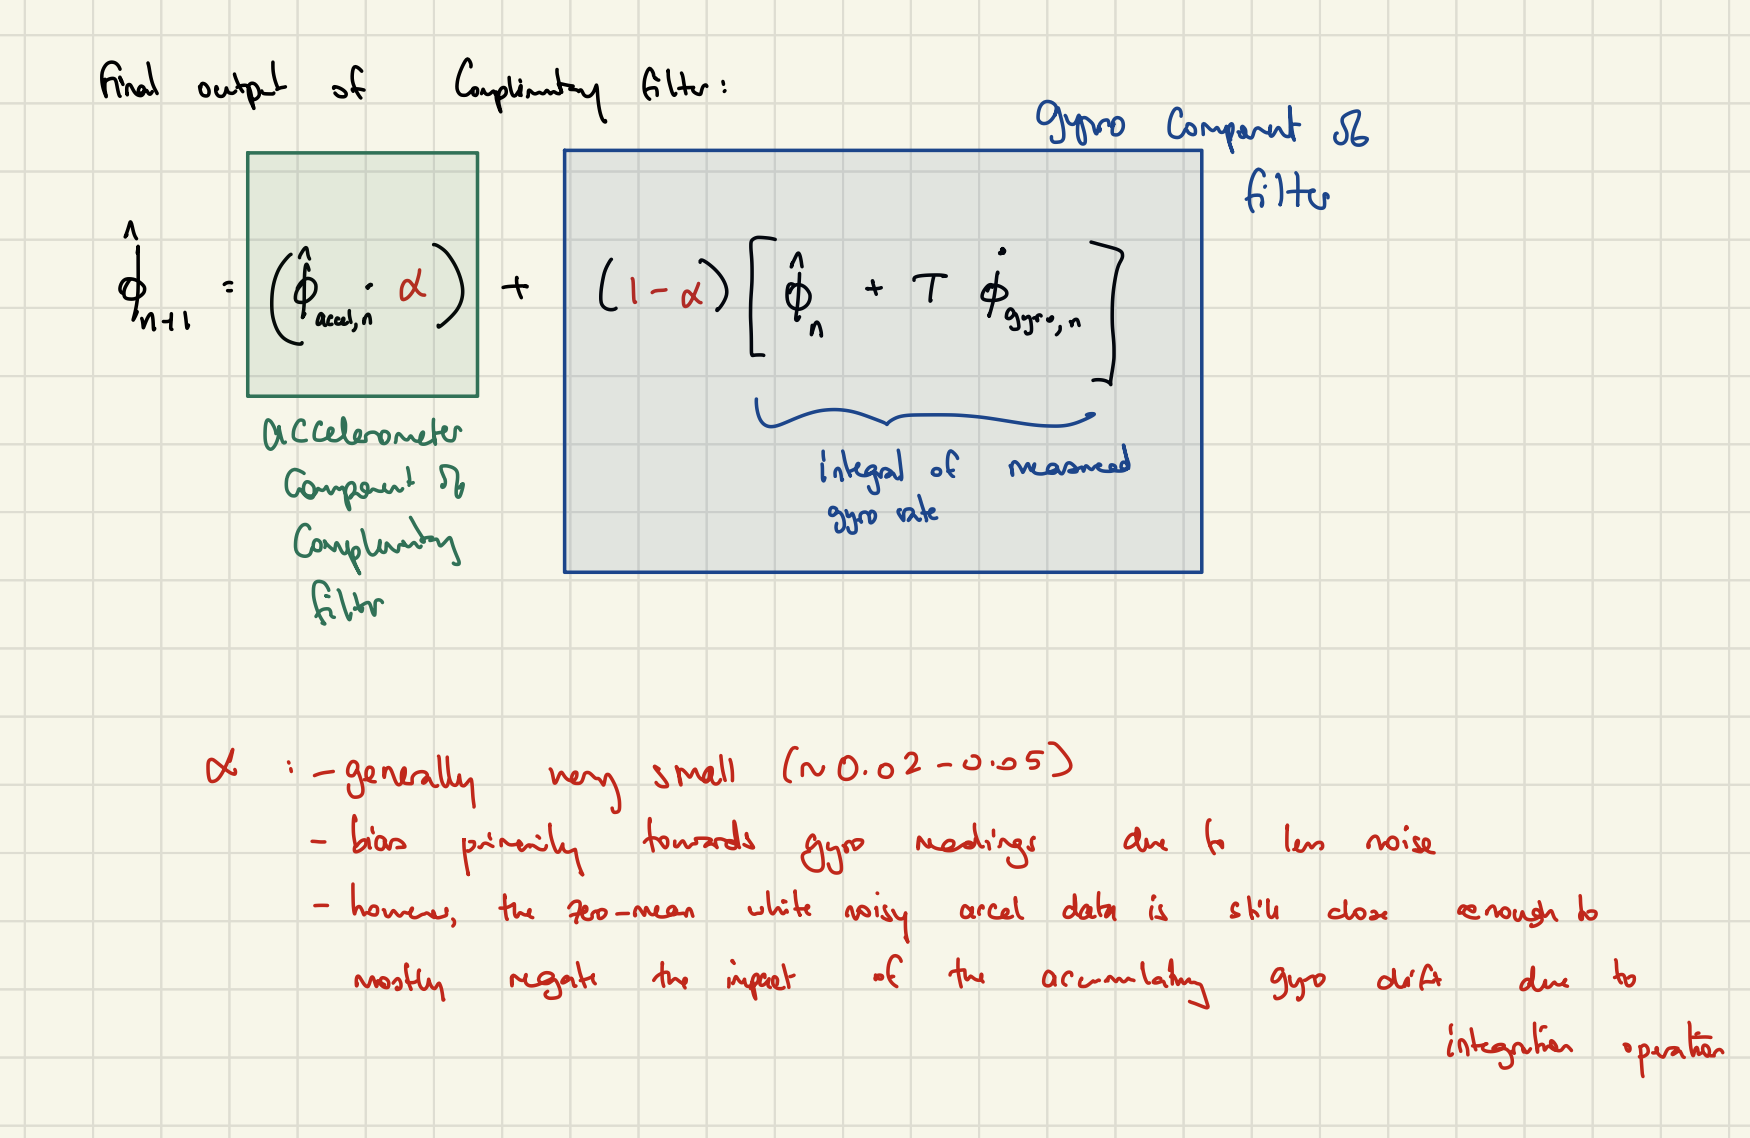 Final output of Complimentary filter:
Gyro Component of
filter
φ̂ₙ₊₁ = (φ̂_accel,n · α) + (1-α) [φ̂ₙ + T φ̇_gyro,n]
accelerometer
Component of
Complimentary
filter
integral of measured
gyro rate
α : - generally very small (~0.02-0.05)
- bias primarily towards gyro readings due to less noise
- however, the zero-mean white noisy accel data is still close enough to
mostly negate the impact of the accumulating gyro drift due to
integration operation